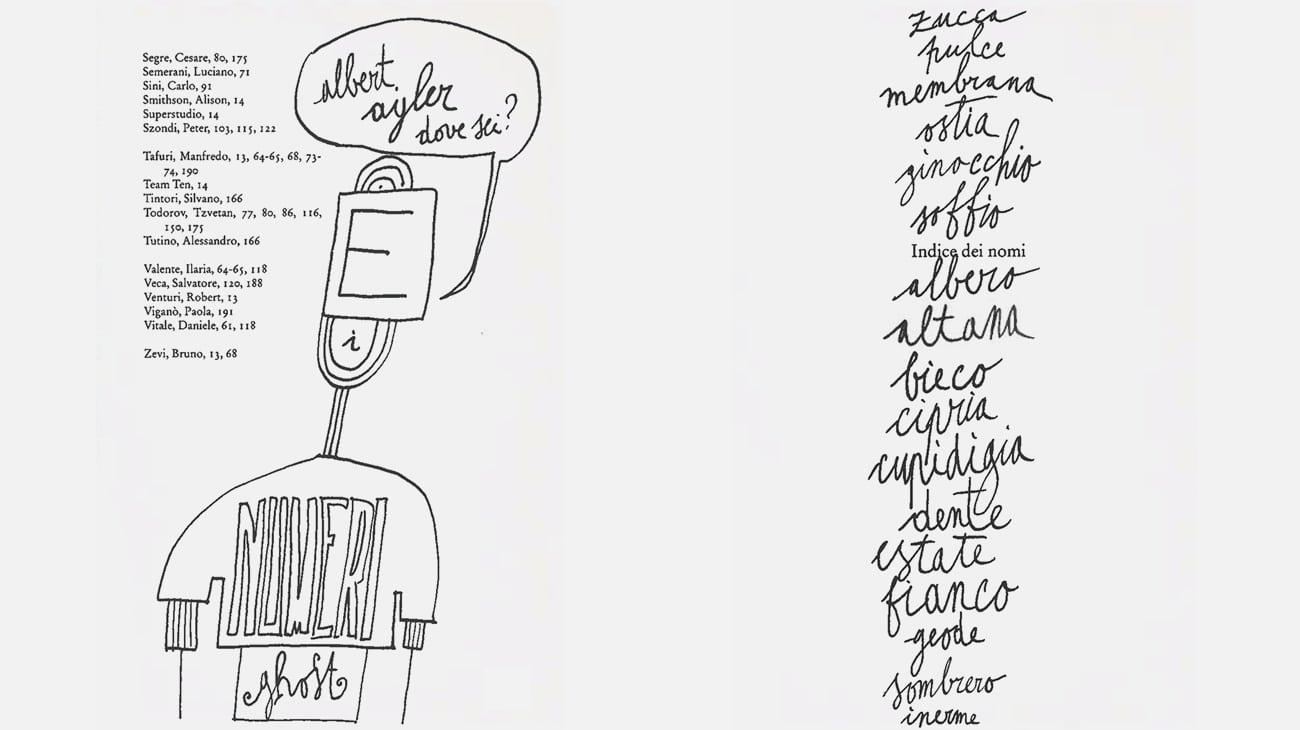 Segre, Cesare, 80, 175
Semerani, Luciano, 71
Sini, Carlo, 91
Smithson, Alison, 14
Superstudio, 14
Szondi, Peter, 103, 115, 122
Tafuri, Manfredo, 13, 64-65, 68, 73-
74, 190
Team Ten, 14
Tintori, Silvano, 166
Todorov, Tzvetan, 77, 80, 86, 116,
150, 175
Tutino, Alessandro, 166
Valente, Ilaria, 64-65, 118
Veca, Salvatore, 120, 188
Venturi, Robert, 13
Viganò, Paola, 191
Vitale, Daniele, 61, 118
Zevi, Bruno, 13, 68
albert
ayler
dove sei?
E
i
NUMERI
ghost
zucca
pulce
membrana
ostia
ginocchio
soffio
Indice dei nomi
albero
altana
bieco
cipria
cupidigia
dente
estate
fianco
geode
sombrero
inerme